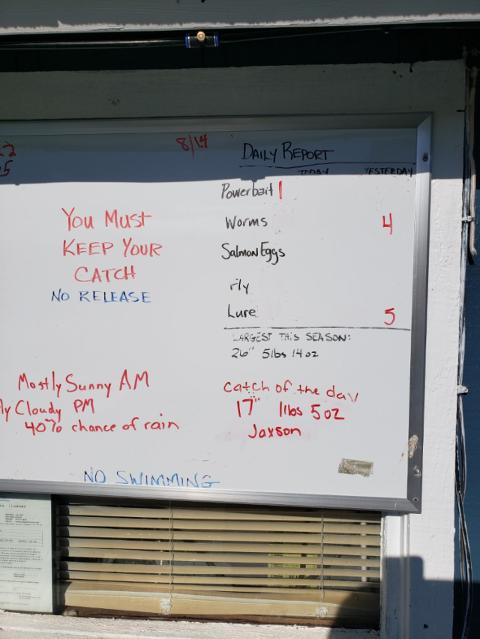 8/14
DAILY REPORT
TODAY YESTERDAY
Powerbait 1
Worms 4
Salmon Eggs
Fly
Lure 5
YOU MUST
KEEP YOUR
CATCH
NO RELEASE
LARGEST THIS SEASON:
26" 5lbs 14oz
Mostly Sunny AM
ly Cloudy PM
40% chance of rain
catch of the day
17" 1lbs 5oz
Jaxson
NO SWIMMING